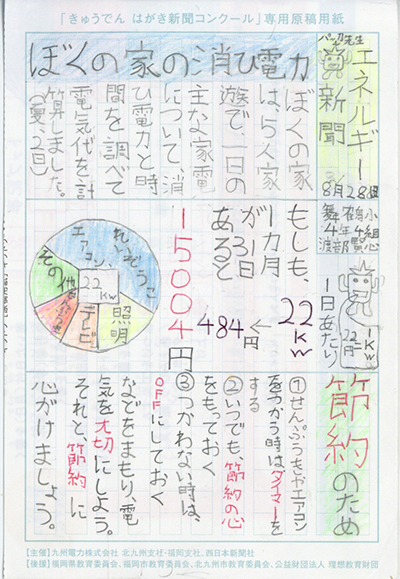 「きゅうでん はがき新聞コンクール」専用原稿用紙
エネルギー
新聞
8月28日
舞鶴小
4年4組
ぼくの家の消ひ電力
ぼくの家
は、5人家
族で、一日の
主な家電
について、消
ひ電力と時
間を調べて
電気代を計
算しました。
(夏、2日)
1kW
22円
1日あたり
もしも、
22kW
1カ月
が31日
あると
484円
15004円
れいぞうこ
エアコン
その他
22kW
照明
テレビ
節約のため
①せんぷうきやエアコン
をつかう時は、タイマーを
する
②いつでも、節約の心
をもっておく
③つかわない時は、
OFFにしておく
などをまもり、電
気を大切にしよう。
それと節約に
心がけましょう。
【主催】九州電力株式会社 北九州支社・福岡支社、西日本新聞社
【後援】福岡県教育委員会、福岡市教育委員会、北九州市教育委員会、公益財団法人 理想教育財団